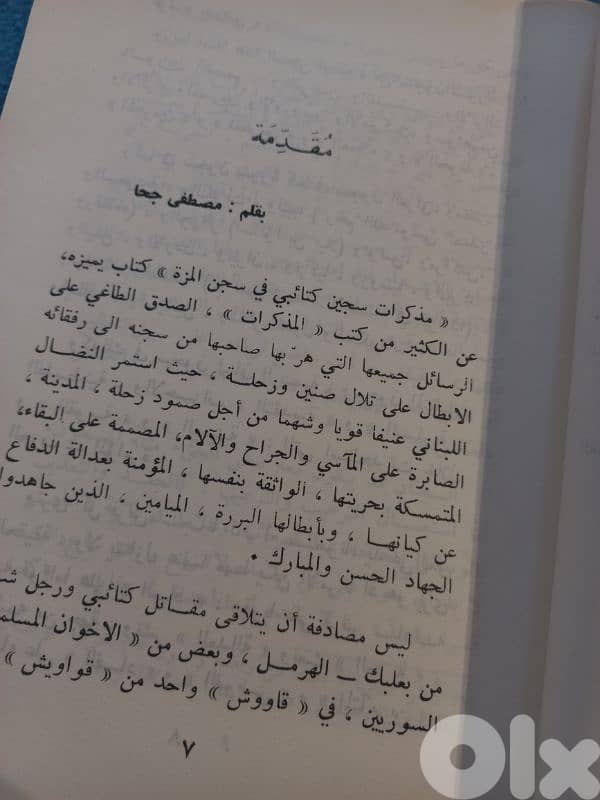 مُقَدِّمَة
بقلم : مصطفى جحا
« مذكرات سجين كتائبي في سجن المزة » كتاب يميزه،
عن الكثير من كتب « المذكرات » ، الصدق الطاغي على
الرسائل جميعها التي هرّبها صاحبها من سجنه الى رفقائه
الابطال على تلال صنين وزحلة ، حيث استمر النضال
اللبناني عنيفا قويا وشهما من أجل صمود زحلة ، المدينة ،
الصابرة على المآسي والجراح والآلام، المصممة على البقاء،
المتمسكة بحريتها ، الواثقة بنفسها ، المؤمنة بعدالة الدفاع
عن كيانها ، وبأبطالها البررة ، الميامين ، الذين جاهدوا
الجهاد الحسن والمبارك .
ليس مصادفة أن يتلاقى مقاتل كتائبي ورجل
من بعلبك ــ الهرمل ، وبعض من « الاخوان
السوريين ، في « قاووش » واحد من « قواويش »
٧
OLX